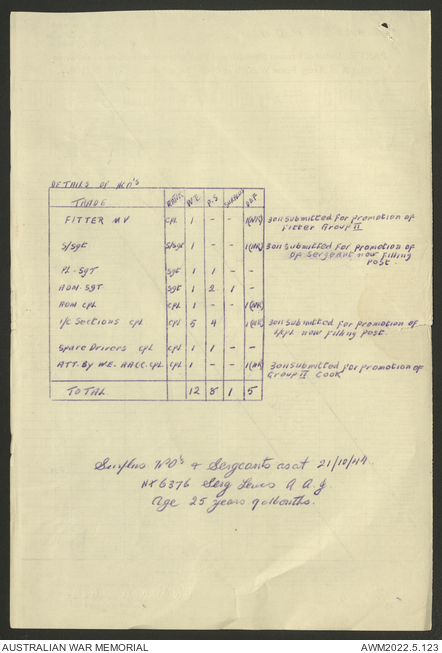 DETAILS OF NCO'S
TRADE RANK W.E P.S SURPLUS DEF
FITTER MV CPL 1 - - 1(NR) 3011 submitted for promotion of
Fitter Group II
S/Sgt S/Sgt 1 - - 1(NR) 3011 submitted for promotion of
of Sergeant now filling
post.
PL-SGT Sgt 1 1 - -
ADM. SGT Sgt 1 2 1 -
ADM. CPL CPL 1 - - 1(NR)
I/C Sections CPL CPL 5 4 1(NR) 3011 submitted for promotion of
L/CPL now filling post.
Spare Drivers CPL CPL 1 1 - -
ATT. By W.E. AACC. CPL CPL 1 - 1(NR) 3011 submitted for promotion of
Group II Cook
TOTAL 12 8 1 5
Surplus N.C.O's & Sergeants as at 21/10/44.
NX6376 Serg Lewis A A J.
Age 25 years 9 months.
AUSTRALIAN WAR MEMORIAL
AWM2022.5.123